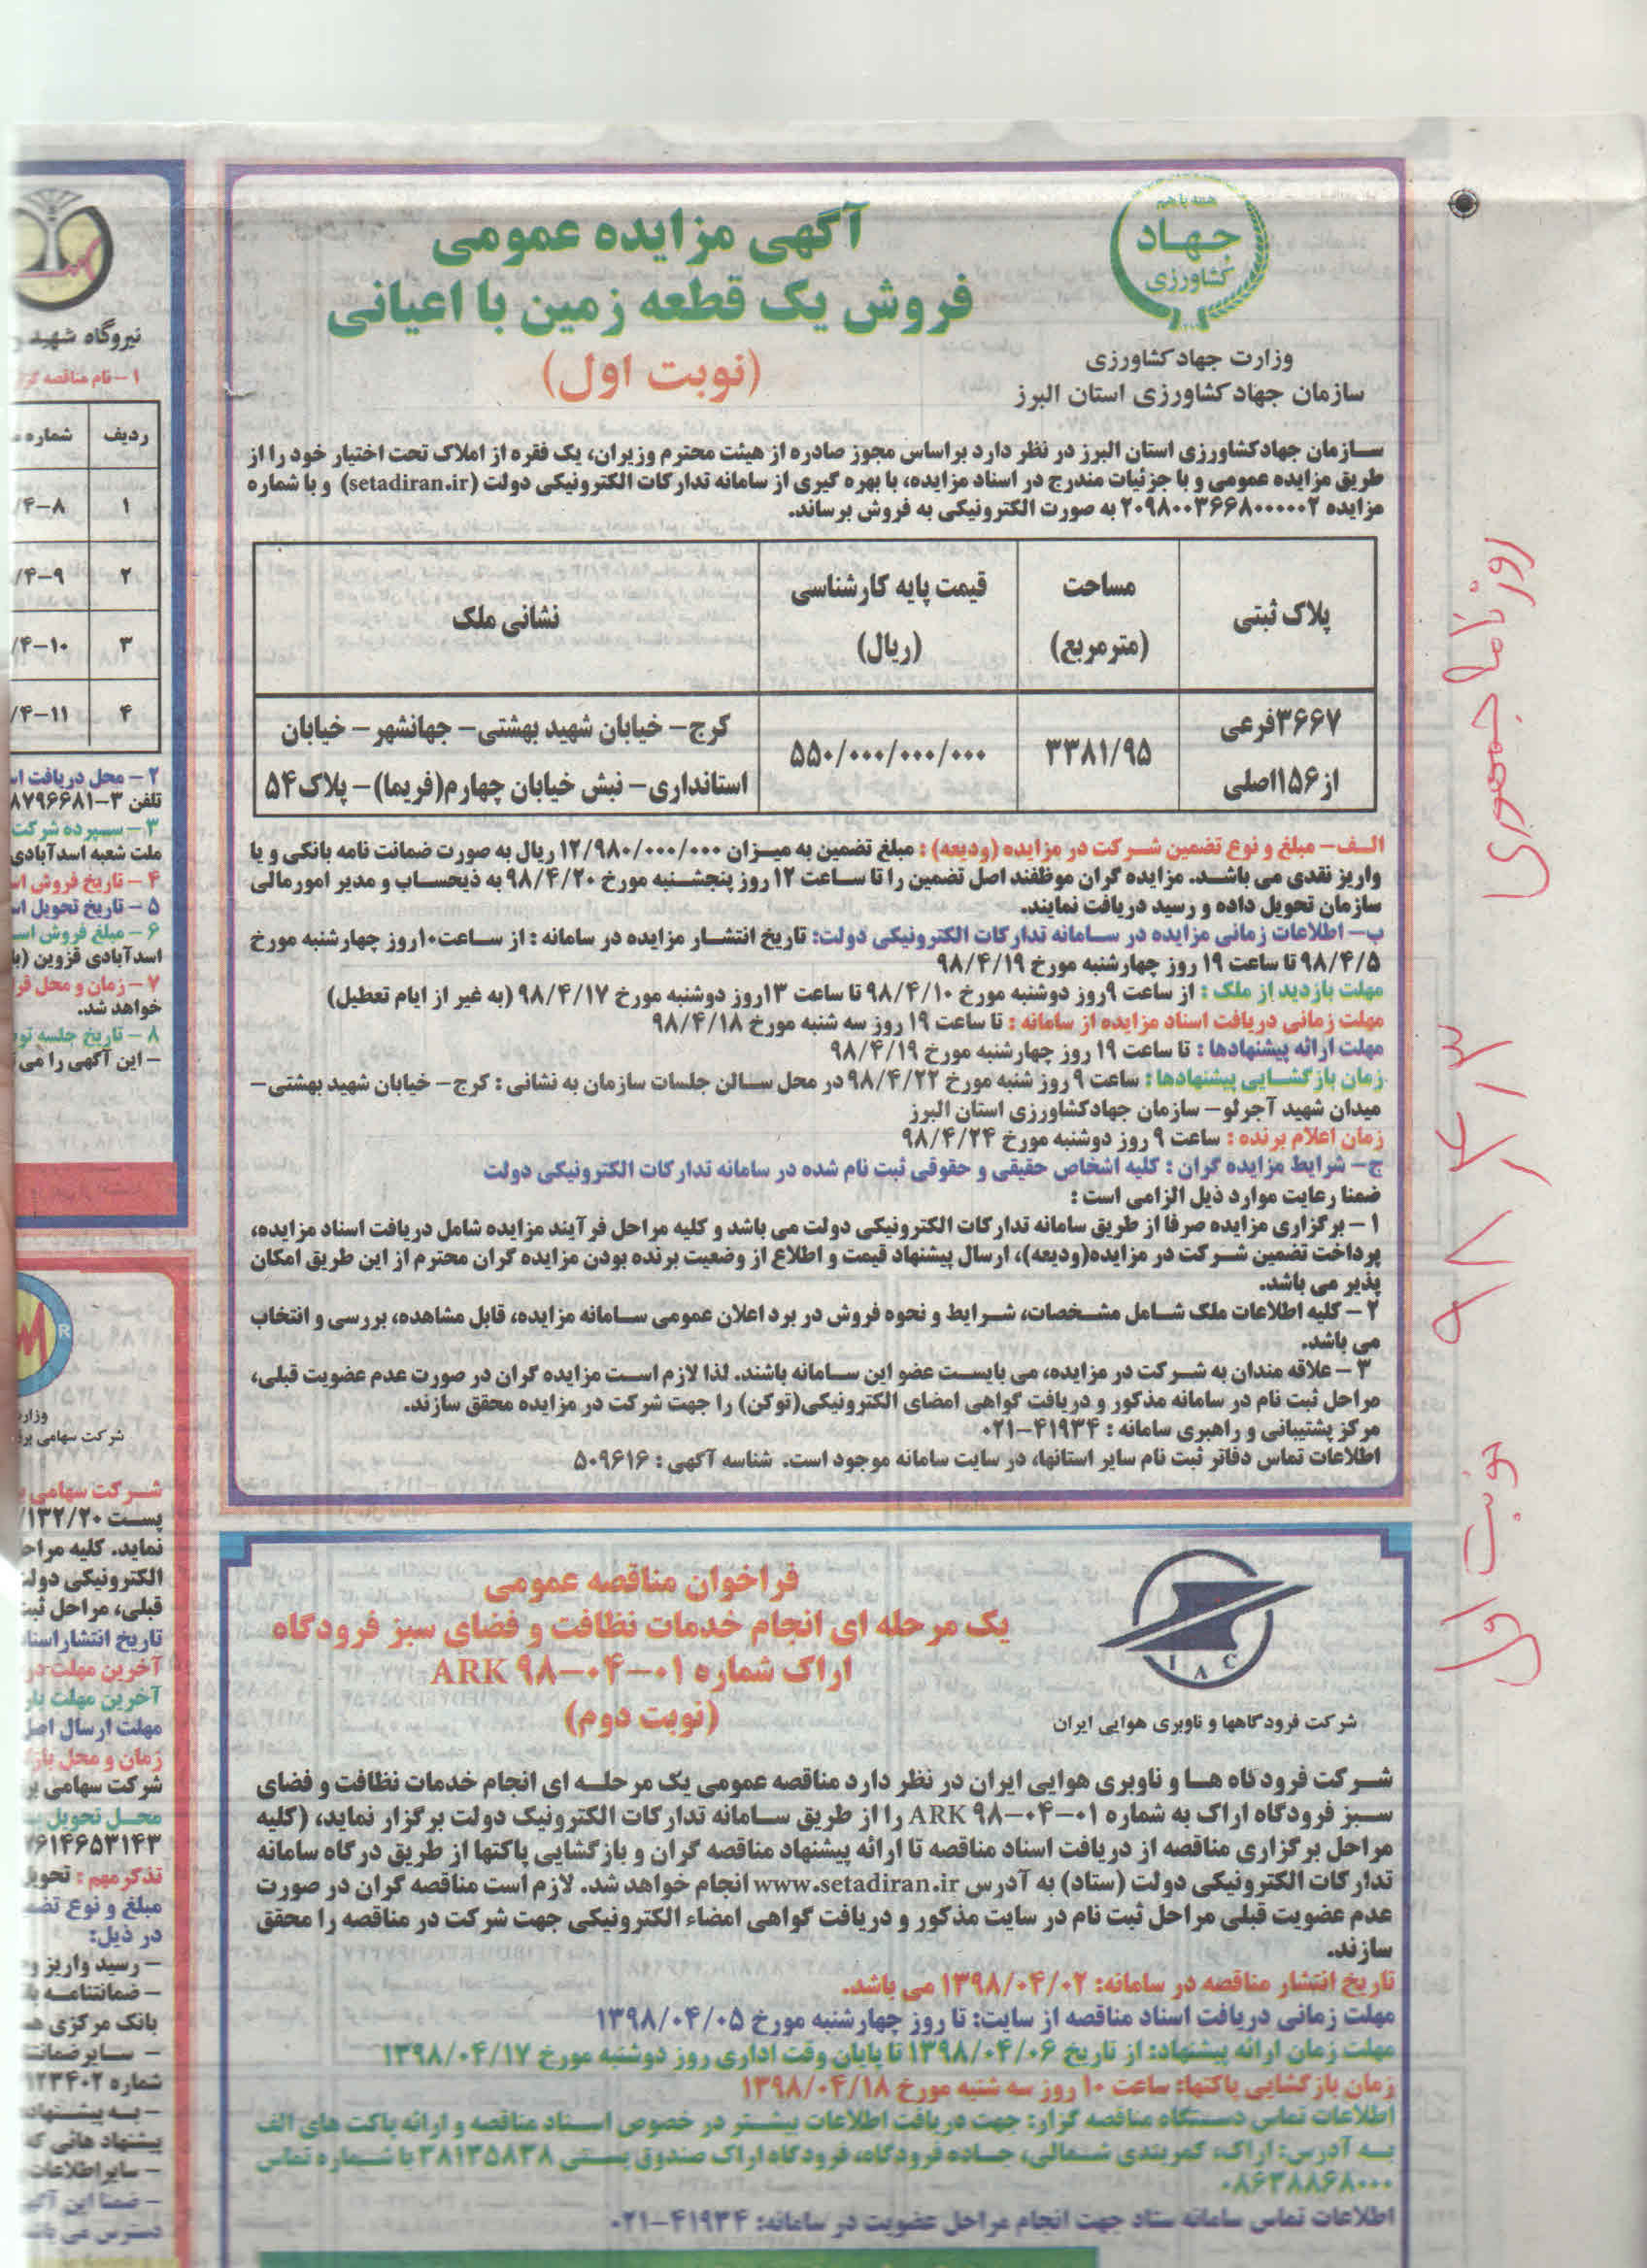 همه با هم
جهاد
کشاورزی
وزارت جهاد کشاورزی
سازمان جهاد کشاورزی استان البرز
آگهی مزایده عمومی
فروش یک قطعه زمین با اعیانی
(نوبت اول)
سازمان جهادکشاورزی استان البرز در نظر دارد براساس مجوز صادره از هیئت محترم وزیران، یک فقره از املاک تحت اختیار خود را از
طریق مزایده عمومی و با جزئیات مندرج در اسناد مزایده، با بهره گیری از سامانه تدارکات الکترونیکی دولت (setadiran.ir) و با شماره
مزایده ۲۰۹۸۰۰۳۶۶۸۰۰۰۰۰۲ به صورت الکترونیکی به فروش برساند.
پلاک ثبتی | مساحت (مترمربع) | قیمت پایه کارشناسی (ریال) | نشانی ملک
۳۶۶۷فرعی از۱۵۶اصلی | ۳۳۸۱/۹۵ | ۵۵۰/۰۰۰/۰۰۰/۰۰۰ | کرج– خیابان شهید بهشتی– جهانشهر – خیابان استانداری– نبش خیابان چهارم(فریما)– پلاک۵۴
الف– مبلغ و نوع تضمین شرکت در مزایده (ودیعه) : مبلغ تضمین به میزان ۱۲/۹۸۰/۰۰۰/۰۰۰ ریال به صورت ضمانت نامه بانکی و یا
واریز نقدی می باشد. مزایده گران موظفند اصل تضمین را تا ساعت ۱۲ روز پنجشنبه مورخ ۹۸/۴/۲۰ به ذیحساب و مدیر امورمالی
سازمان تحویل داده و رسید دریافت نمایند.
ب– اطلاعات زمانی مزایده در سامانه تدارکات الکترونیکی دولت: تاریخ انتشار مزایده در سامانه : از ساعت۱۰روز چهارشنبه مورخ
۹۸/۴/۵ تا ساعت ۱۹ روز چهارشنبه مورخ ۹۸/۴/۱۹
مهلت بازدید از ملک : از ساعت ۹روز دوشنبه مورخ ۹۸/۴/۱۰ تا ساعت ۱۳روز دوشنبه مورخ ۹۸/۴/۱۷ (به غیر از ایام تعطیل)
مهلت زمانی دریافت اسناد مزایده از سامانه : تا ساعت ۱۹ روز سه شنبه مورخ ۹۸/۴/۱۸
مهلت ارائه پیشنهادها : تا ساعت ۱۹ روز چهارشنبه مورخ ۹۸/۴/۱۹
زمان بازگشایی پیشنهادها : ساعت ۹ روز شنبه مورخ ۹۸/۴/۲۲ در محل سالن جلسات سازمان به نشانی : کرج– خیابان شهید بهشتی–
میدان شهید آجرلو– سازمان جهادکشاورزی استان البرز
زمان اعلام برنده : ساعت ۹ روز دوشنبه مورخ ۹۸/۴/۲۴
ج– شرایط مزایده گران : کلیه اشخاص حقیقی و حقوقی ثبت نام شده در سامانه تدارکات الکترونیکی دولت
ضمنا رعایت موارد ذیل الزامی است :
۱– برگزاری مزایده صرفا از طریق سامانه تدارکات الکترونیکی دولت می باشد و کلیه مراحل فرآیند مزایده شامل دریافت اسناد مزایده،
پرداخت تضمین شرکت در مزایده(ودیعه)، ارسال پیشنهاد قیمت و اطلاع از وضعیت برنده بودن مزایده گران محترم از این طریق امکان
پذیر می باشد.
۲– کلیه اطلاعات ملک شامل مشخصات، شرایط و نحوه فروش در برد اعلان عمومی سامانه مزایده، قابل مشاهده، بررسی و انتخاب
می باشد.
۳– علاقه مندان به شرکت در مزایده، می بایست عضو این سامانه باشند. لذا لازم است مزایده گران در صورت عدم عضویت قبلی،
مراحل ثبت نام در سامانه مذکور و دریافت گواهی امضای الکترونیکی(توکن) را جهت شرکت در مزایده محقق سازند.
مرکز پشتیبانی و راهبری سامانه : ۴۱۹۳۴–۰۲۱
اطلاعات تماس دفاتر ثبت نام سایر استانها، در سایت سامانه موجود است. شناسه آگهی : ۵۰۹۶۱۶
IAC
شرکت فرودگاهها و ناوبری هوایی ایران
فراخوان مناقصه عمومی
یک مرحله ای انجام خدمات نظافت و فضای سبز فرودگاه
اراک شماره ARK ۹۸–۰۴–۰۱
(نوبت دوم)
شرکت فرودگاه ها و ناوبری هوایی ایران در نظر دارد مناقصه عمومی یک مرحله ای انجام خدمات نظافت و فضای
سبز فرودگاه اراک به شماره ARK ۹۸–۰۴–۰۱ را از طریق سامانه تدارکات الکترونیک دولت برگزار نماید، (کلیه
مراحل برگزاری مناقصه از دریافت اسناد مناقصه تا ارائه پیشنهاد مناقصه گران و بازگشایی پاکتها از طریق درگاه سامانه
تدارکات الکترونیکی دولت (ستاد) به آدرس www.setadiran.ir انجام خواهد شد. لازم است مناقصه گران در صورت
عدم عضویت قبلی مراحل ثبت نام در سایت مذکور و دریافت گواهی امضاء الکترونیکی جهت شرکت در مناقصه را محقق
سازند.
تاریخ انتشار مناقصه در سامانه: ۱۳۹۸/۰۴/۰۲ می باشد.
مهلت زمانی دریافت اسناد مناقصه از سایت: تا روز چهارشنبه مورخ ۱۳۹۸/۰۴/۰۵
مهلت زمان ارائه پیشنهاد: از تاریخ ۱۳۹۸/۰۴/۰۶ تا پایان وقت اداری روز دوشنبه مورخ ۱۳۹۸/۰۴/۱۷
زمان بازگشایی پاکتها: ساعت ۱۰ روز سه شنبه مورخ ۱۳۹۸/۰۴/۱۸
اطلاعات تماس دستگاه مناقصه گزار: جهت دریافت اطلاعات بیشتر در خصوص اسناد مناقصه و ارائه پاکت های الف
به آدرس: اراک، کمربندی شمالی، جاده فرودگاه، فرودگاه اراک صندوق پستی ۳۸۱۳۵۸۳۸ با شماره تماس
۰۸۶۳۸۸۶۸۰۰۰
اطلاعات تماس سامانه ستاد جهت انجام مراحل عضویت در سامانه: ۴۱۹۳۴–۰۲۱
روزنامه جمهوری
۹۸/۴/۳
نوبت اول
نیروگاه شهید
۱–نام مناقصه
ردیف | شماره
۱ | ۴–۸
۲ | ۴–۹
۳ | ۴–۱۰
۴ | ۴–۱۱
۲– محل دریافت
تلفن ۳–
۳– سپرده شرکت
ملت شعبه اسدآبادی
۴– تاریخ فروش
۵– تاریخ تحویل
۶– مبلغ فروش
اسدآبادی قزوین
۷– زمان و محل
خواهد شد.
۸– تاریخ جلسه
– این آگهی را می
شرکت سهامی
شرکت سهامی
پست ۱۳۲/۲۰
نماید. کلیه
الکترونیکی
قبلی، مراحل
تاریخ انتشار
آخرین مهلت
آخرین مهلت
مهلت ارسال
زمان و محل
شرکت سهامی
محل تحویل
تذکر مهم :
مبلغ و نوع
در ذیل:
– رسید واریز
– ضمانتنامه
بانک مرکزی
– سایر
شماره
– به
پیشنهاد هائی که
– سایر اطلاعات
– ضمنا این
دسترس می